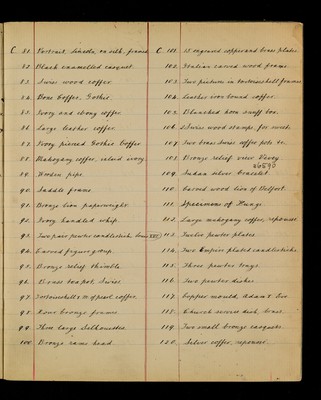 C. 81. Portrait, Lincoln, on silk, framed
82. Black enamelled casquet.
83. Swiss wood coffer.
84. Bone Coffer, Gothic.
85. Ivory and ebony coffer.
86. Large leather coffer.
87. Ivory pierced Gothic Coffer.
88. Mahogany coffer, inlaid ivory.
89. Wooden pipe.
90. Saddle frame
91. Bronze lion paperweight
92. Ivory handled whip.
93. Two pair pewter candlesticks, Louis XVI
94. Carved figure group.
95. Bronze relief thimble.
96. Brass teapot, Swiss.
97. Tortoiseshell & m. of pearl coffer.
98. Bone bronze frame
99. Three large Silhouettes
100. Bronze rams head.
C. 101. 15 engraved copper and brass plates
102. Italian carved wood frame.
103. Two pictures in tortoiseshell frames
104. Leather iron bound coffer.
105. Blanched horn snuff box.
106. 2 Swiss wood stamps for sweets.
107. Two brass Swiss coffee pots etc.
108. Bronze relief view Vevey
26590
109. Indian silver bracelet.
110. Carved wood lion of Belfort.
111. Specimens of Knags
112. Large mahogany coffer, repousse.
113. Twelve pewter plates
114. Two Empire plated candlesticks.
115. Three pewter trays.
116. Two pewter dishes
117. Copper mould, Adam & Eve
118. Church service dish, brass.
119. Two small bronze casquets
120. Silver coffer, repousse.